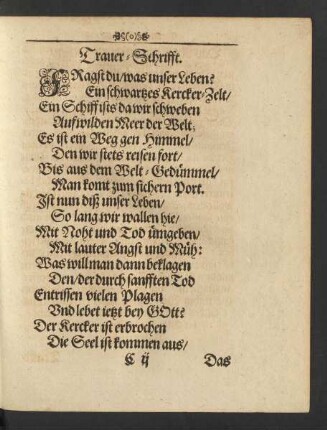 (o)
Trauer-Schrifft.
FRagst du/was unser Leben?
Ein schwartzes Kercker-Zelt/
Ein Schiff ists da wir schweben
Auf wilden Meer der Welt;
Es ist ein Weg gen Himmel/
Den wir stets reisen fort/
Bis aus dem Welt-Getümmel/
Man komt zum sichern Port.
Ist nun diß unser Leben/
So lang wir wallen hie/
Mit Noht und Tod ümgeben/
Mit lauter Angst und Müh:
Was will man dann beklagen
Den/der durch sanfften Tod
Entrissen vielen Plagen
Vnd lebet ietzt bey GOtt?
Der Kercker ist erbrochen
Die Seel ist kommen aus/
C ij Das